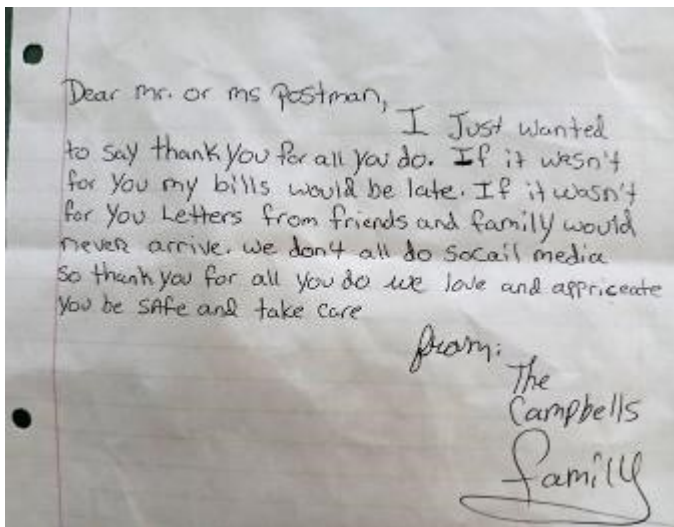 Dear mr. or ms Postman,
I Just wanted
to say thank you for all you do. If it wasn't
for you my bills would be late. If it wasn't
for you Letters from friends and family would
never arrive. we don't all do socail media
so thank you for all you do we love and appriceate
you be safe and take care
from:
The
Campbells
familly